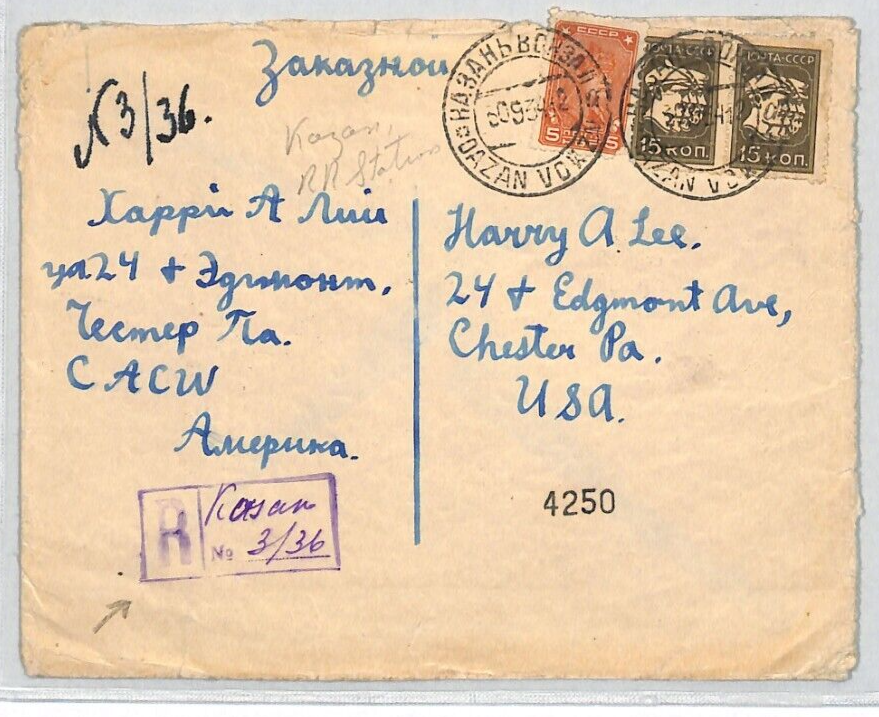 Заказное
N3/36.
Kazan,
RR Station
Харри А Лии
ул.24 + Эдгмонт.
Честер Па.
САСШ
Америка.
Harry A Lee.
24 + Edgmont Ave,
Chester Pa.
USA.
4250
R Kasan
№ 3/36
СССР
5 5
ПОЧТА-СССР
15 КОП.
ПОЧТА-СССР
15 КОП.
КАЗАНЬ ВОКЗАЛ
QAZAN VOK
QAZAN VOK